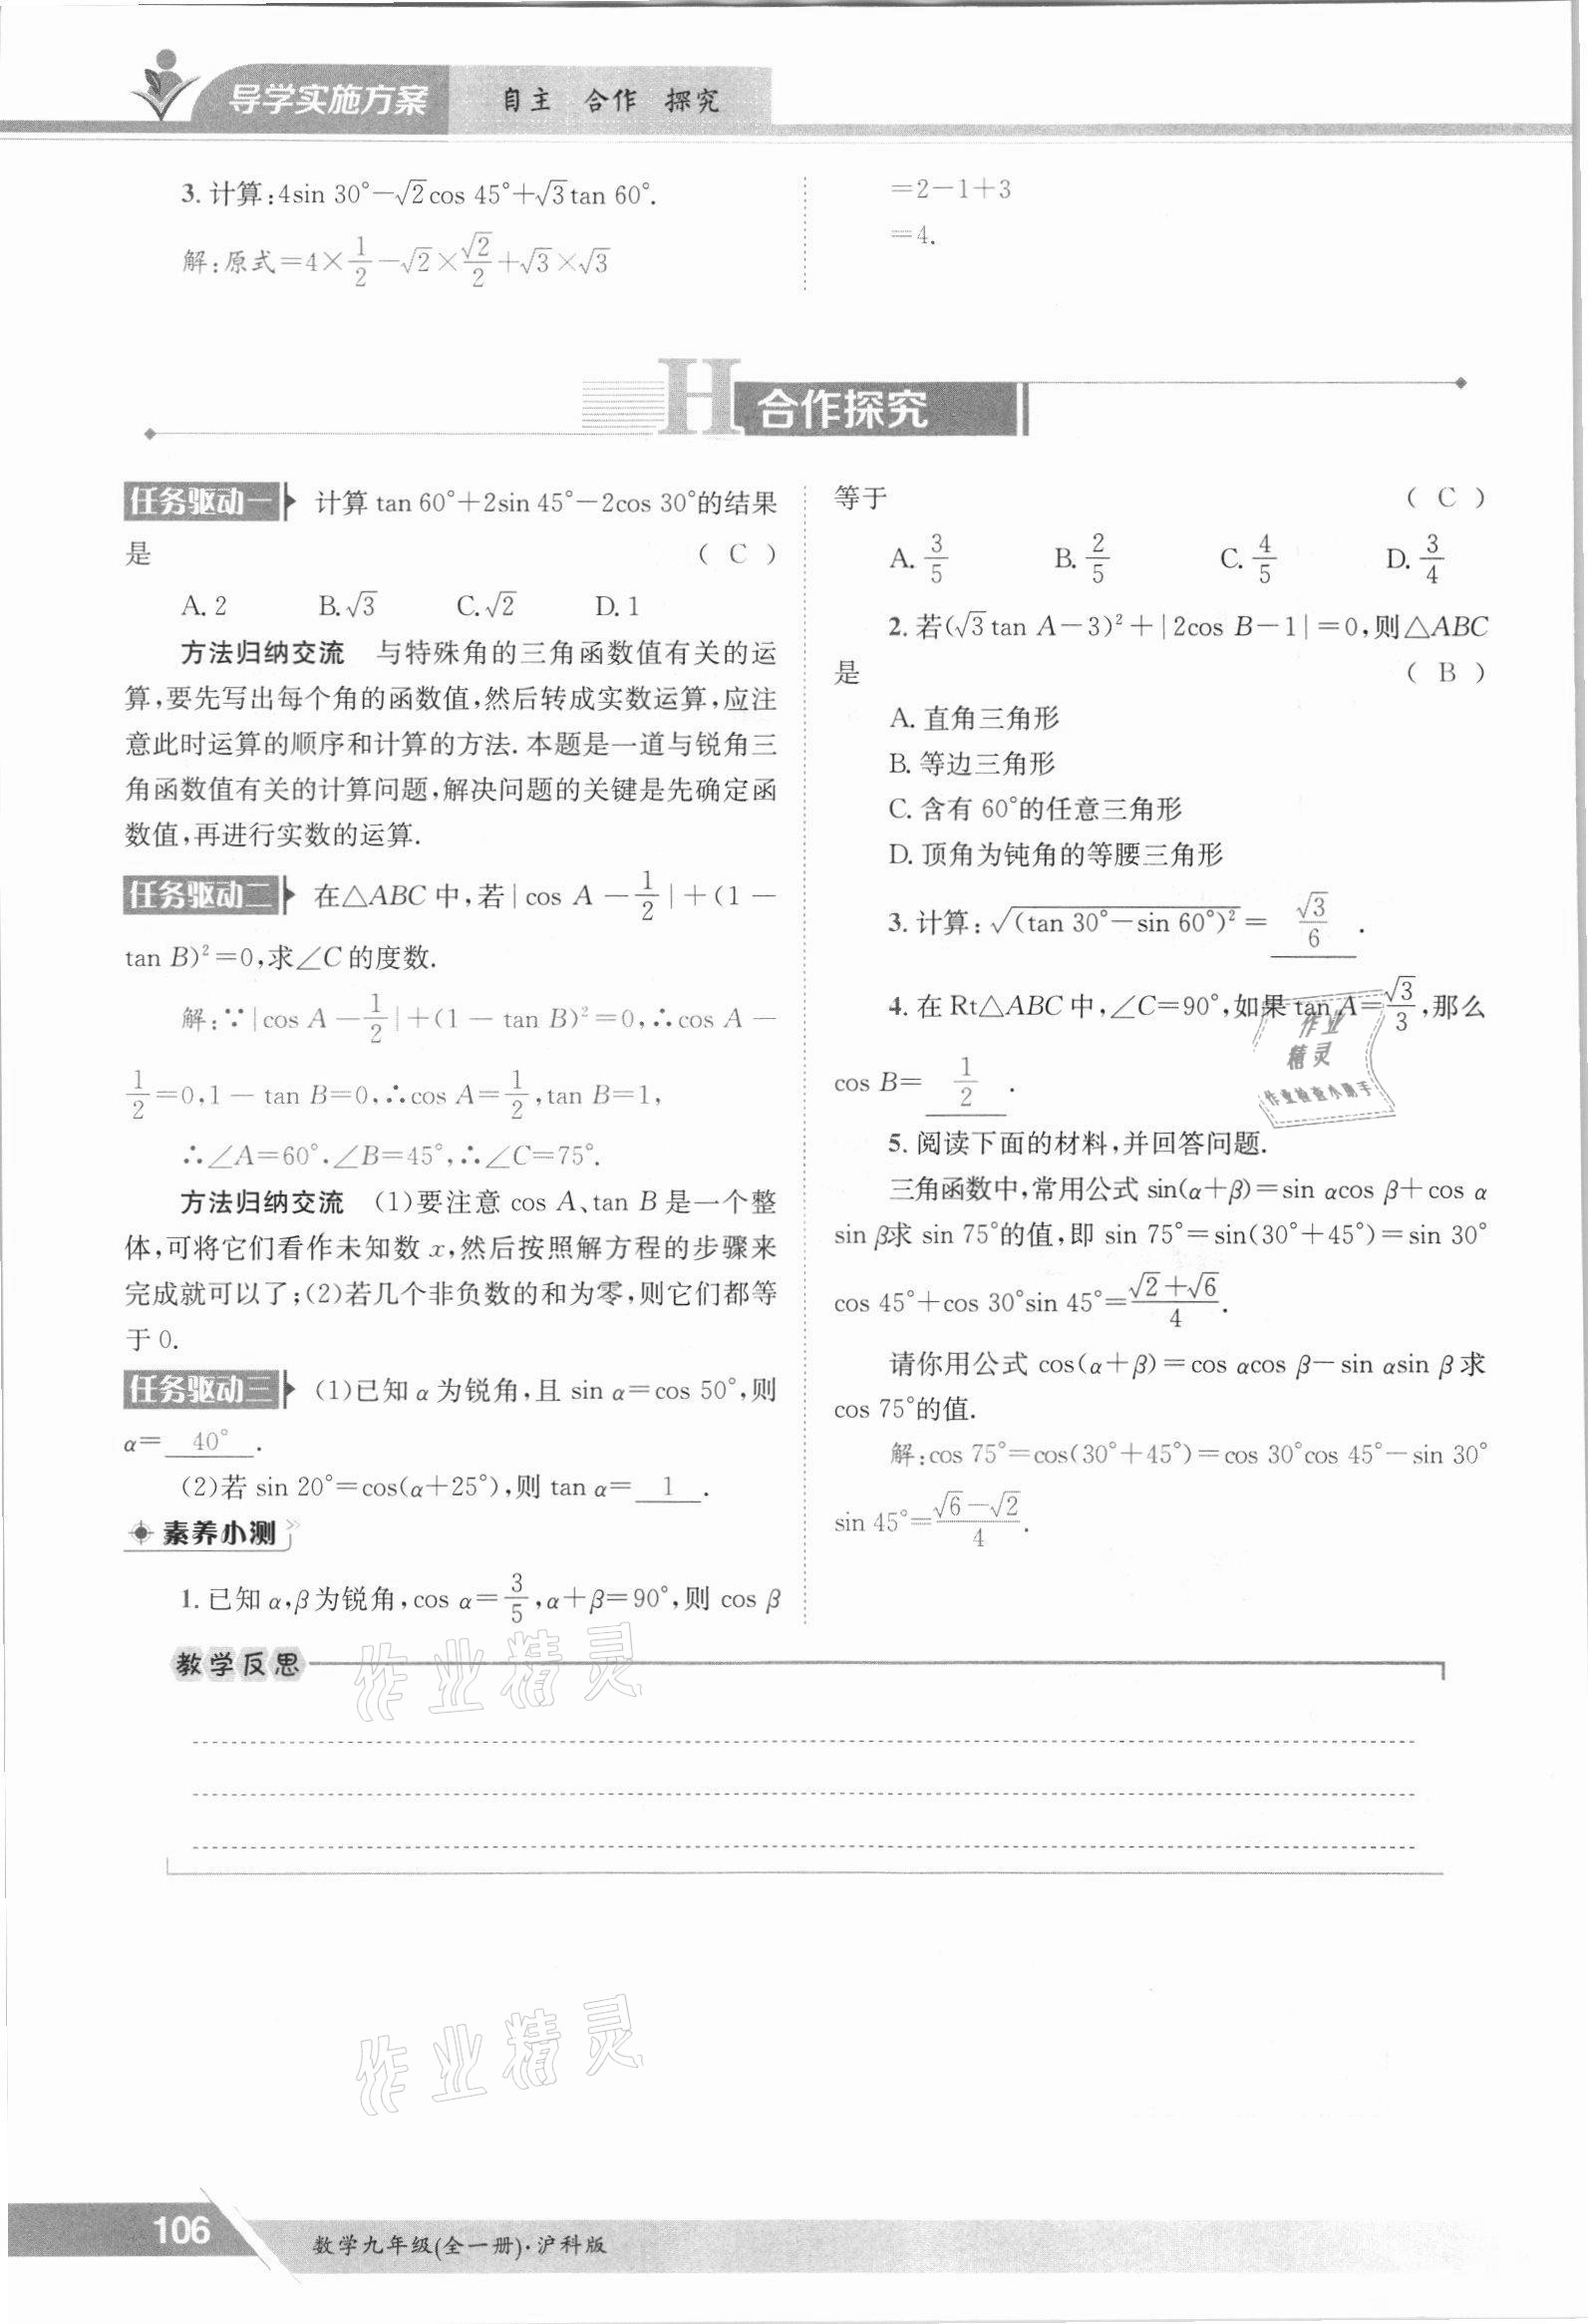 导学实施方案 自主 合作 探究
3. 计算:4sin 30°－√2cos 45°＋√3tan 60°.
解:原式＝4×1/2－√2×√2/2＋√3×√3
＝2－1＋3
＝4.
H 合作探究
任务驱动一 计算 tan 60°＋2sin 45°－2cos 30°的结果
是 ( C )
A. 2 B. √3 C. √2 D. 1
方法归纳交流 与特殊角的三角函数值有关的运
算,要先写出每个角的函数值,然后转成实数运算,应注
意此时运算的顺序和计算的方法. 本题是一道与锐角三
角函数值有关的计算问题,解决问题的关键是先确定函
数值,再进行实数的运算.
任务驱动二 在△ABC 中,若|cos A－1/2|＋(1－
tan B)²＝0,求∠C 的度数.
解:∵|cos A－1/2|＋(1－tan B)²＝0,∴cos A－
1/2＝0,1－tan B＝0,∴cos A＝1/2,tan B＝1,
∴∠A＝60°,∠B＝45°,∴∠C＝75°.
方法归纳交流 (1)要注意 cos A、tan B 是一个整
体,可将它们看作未知数 x,然后按照解方程的步骤来
完成就可以了;(2)若几个非负数的和为零,则它们都等
于 0.
任务驱动三 (1)已知 α 为锐角,且 sin α＝cos 50°,则
α＝ 40° .
(2)若 sin 20°＝cos(α＋25°),则 tan α＝ 1 .
素养小测
1. 已知 α,β 为锐角,cos α＝3/5,α＋β＝90°,则 cos β
等于 ( C )
A. 3/5 B. 2/5 C. 4/5 D. 3/4
2. 若(√3tan A－3)²＋|2cos B－1|＝0,则△ABC
是 ( B )
A. 直角三角形
B. 等边三角形
C. 含有 60°的任意三角形
D. 顶角为钝角的等腰三角形
3. 计算:√(tan 30°－sin 60°)²＝ √3/6 .
4. 在 Rt△ABC 中,∠C＝90°,如果 tan A＝√3/3,那么
cos B＝ 1/2 .
作业
精灵
作业检查小助手
5. 阅读下面的材料,并回答问题.
三角函数中,常用公式 sin(α＋β)＝sin αcos β＋cos α
sin β求 sin 75°的值,即 sin 75°＝sin(30°＋45°)＝sin 30°
cos 45°＋cos 30°sin 45°＝(√2＋√6)/4.
请你用公式 cos(α＋β)＝cos αcos β－sin αsin β 求
cos 75°的值.
解:cos 75°＝cos(30°＋45°)＝cos 30°cos 45°－sin 30°
sin 45°＝(√6－√2)/4.
教学反思
作业精灵
作业精灵
106 数学九年级(全一册)·沪科版